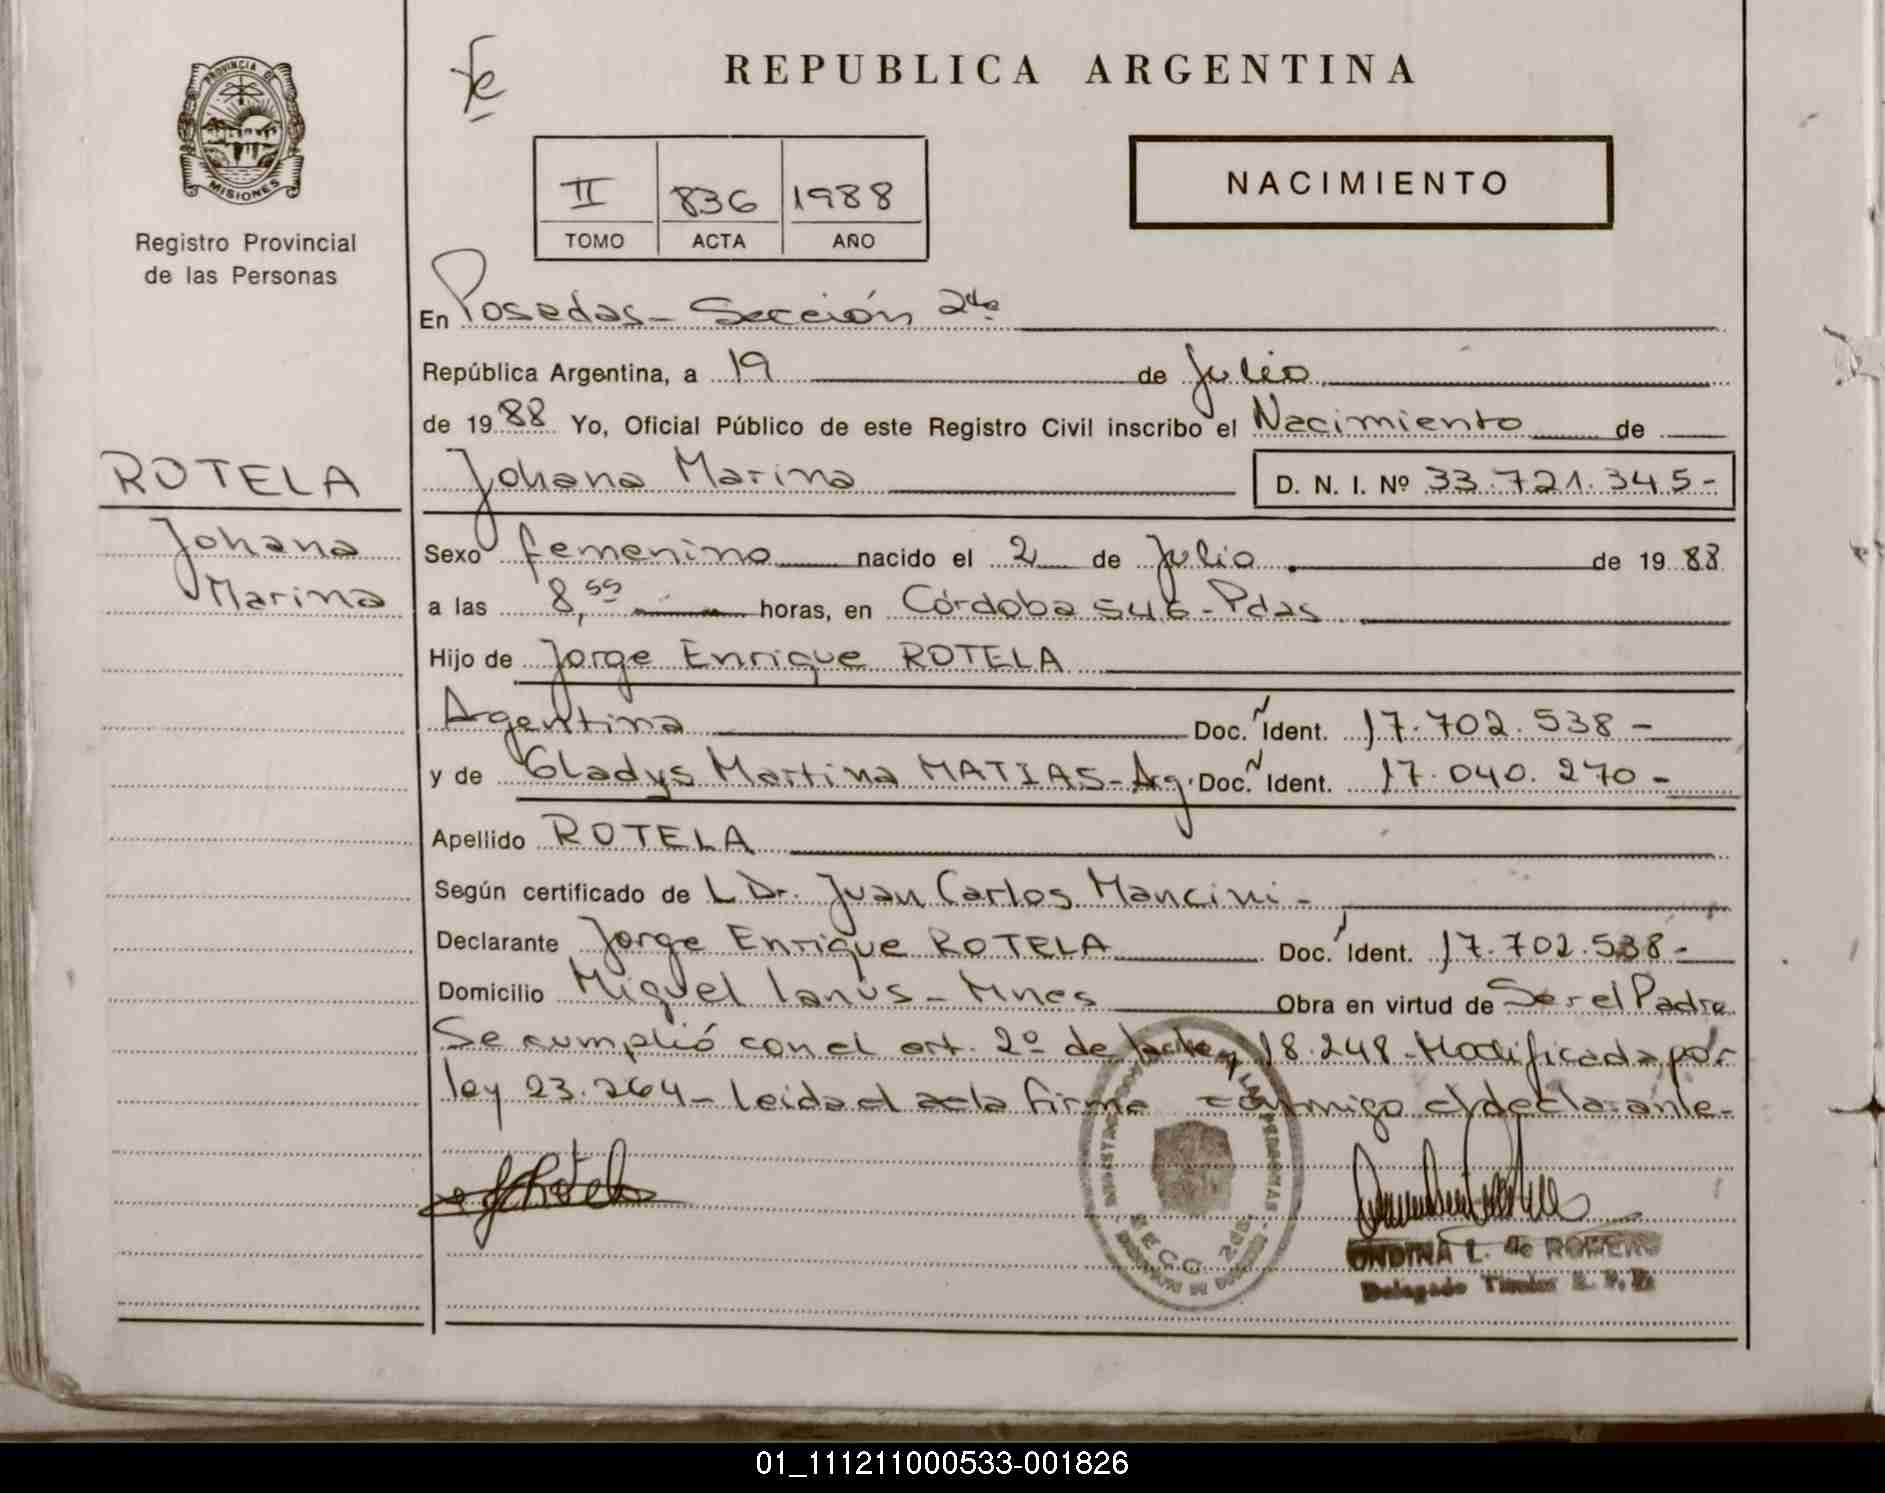 PROVINCIA DE
MISIONES
Registro Provincial
de las Personas
REPUBLICA ARGENTINA
II 836 1988
TOMO ACTA AÑO
NACIMIENTO
En Posadas - Sección 2da
República Argentina, a 19 de Julio
de 1988 Yo, Oficial Público de este Registro Civil inscribo el Nacimiento de
ROTELA
Johana Marina D. N. I. Nº 33.721.345-
Johana
Marina
Sexo femenino nacido el 2 de Julio de 1988
a las 8,55 horas, en Córdoba 546 - Pdas
Hijo de Jorge Enrique ROTELA
Argentina Doc. Ident. 17.702.538-
y de Gladys Martina MATIAS - Arg. Doc. Ident. 17.040.270-
Apellido ROTELA
Según certificado de L Dr. Juan Carlos Mancini -
Declarante Jorge Enrique ROTELA Doc. Ident. 17.702.538-
Domicilio Miguel Lanús - Mnes Obra en virtud de Ser el Padre
Se cumplió con el art. 2º de la ley 18.248 - Modificada por
ley 23.264 - leida el acta firma conmigo el declarante -
LAS PERSONAS
SECC. 2da.
ONDINA L. de ROMERO
Delegado Titular
01_111211000533-001826